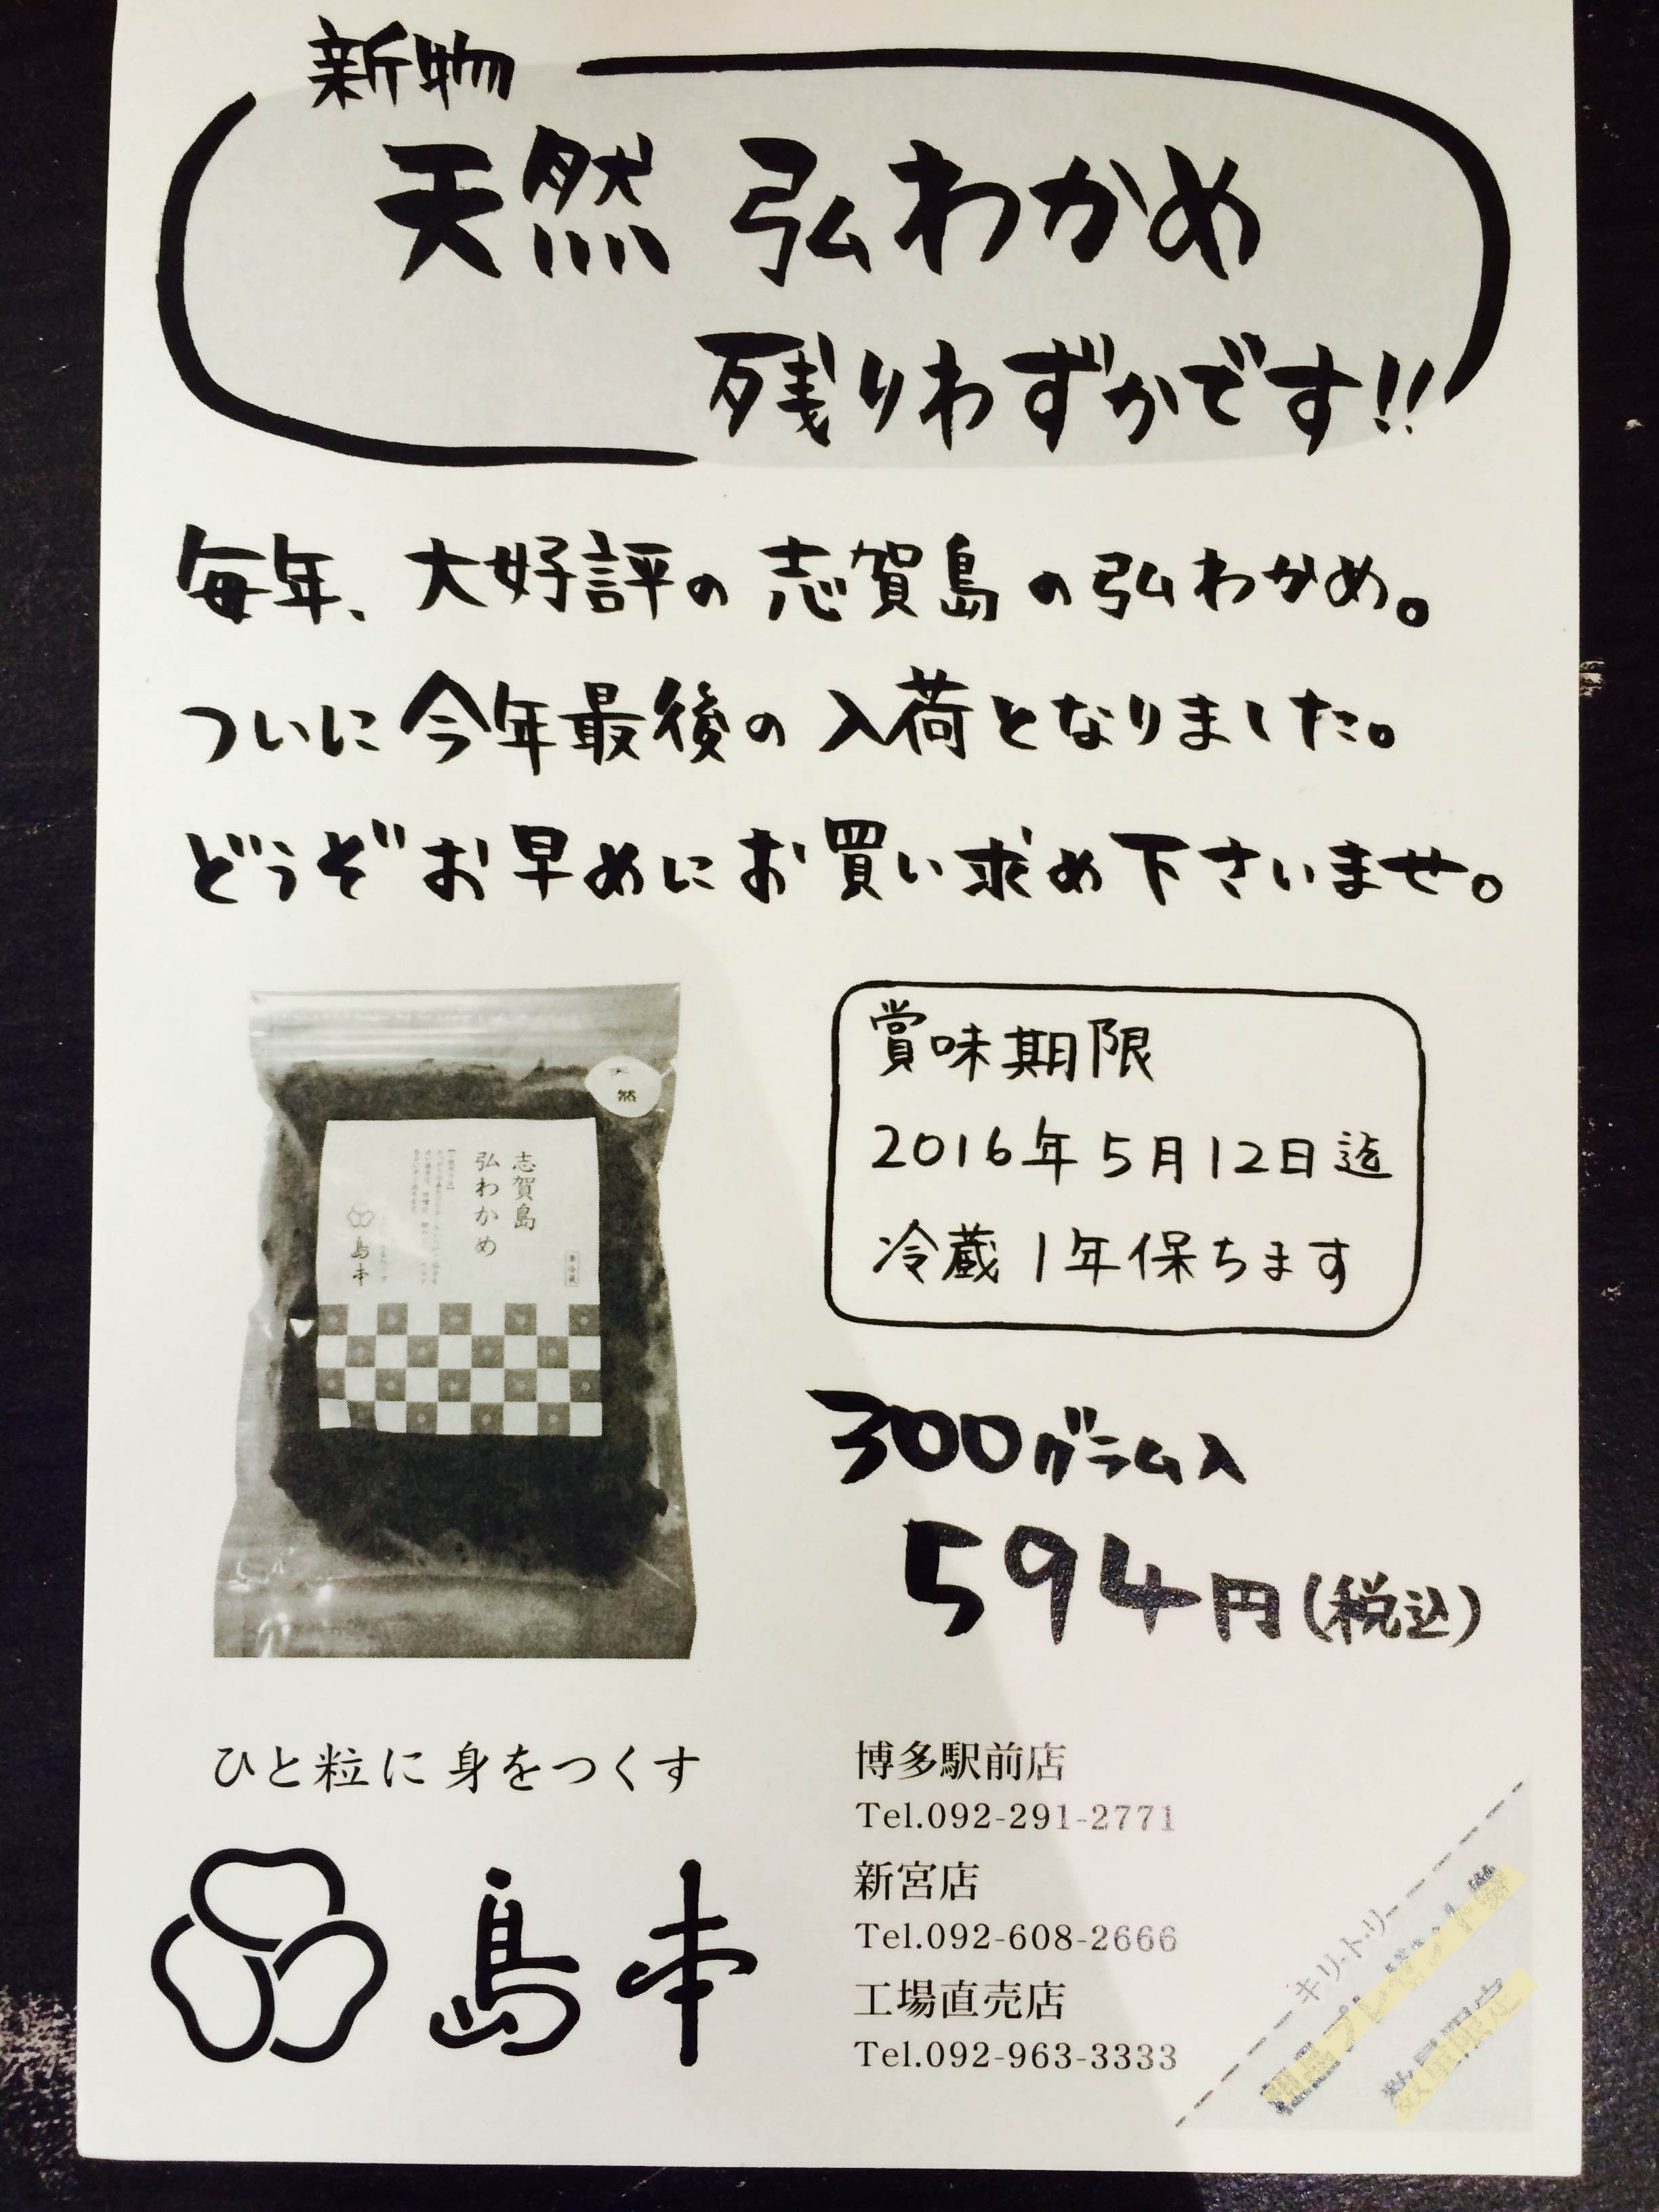 新物
天然 弘わかめ
残りわずかです!!
毎年、大好評の志賀島の弘わかめ。
ついに今年最後の入荷となりました。
どうぞお早めにお買い求め下さいませ。
天然
志賀島
弘わかめ
島本
要冷蔵
賞味期限
2016年5月12日迄
冷蔵1年保ちます
300グラム入
594円(税込)
ひと粒に身をつくす
島本
博多駅前店
Tel.092-291-2771
新宮店
Tel.092-608-2666
工場直売店
Tel.092-963-3333
キリ・ト・リ
数量限定